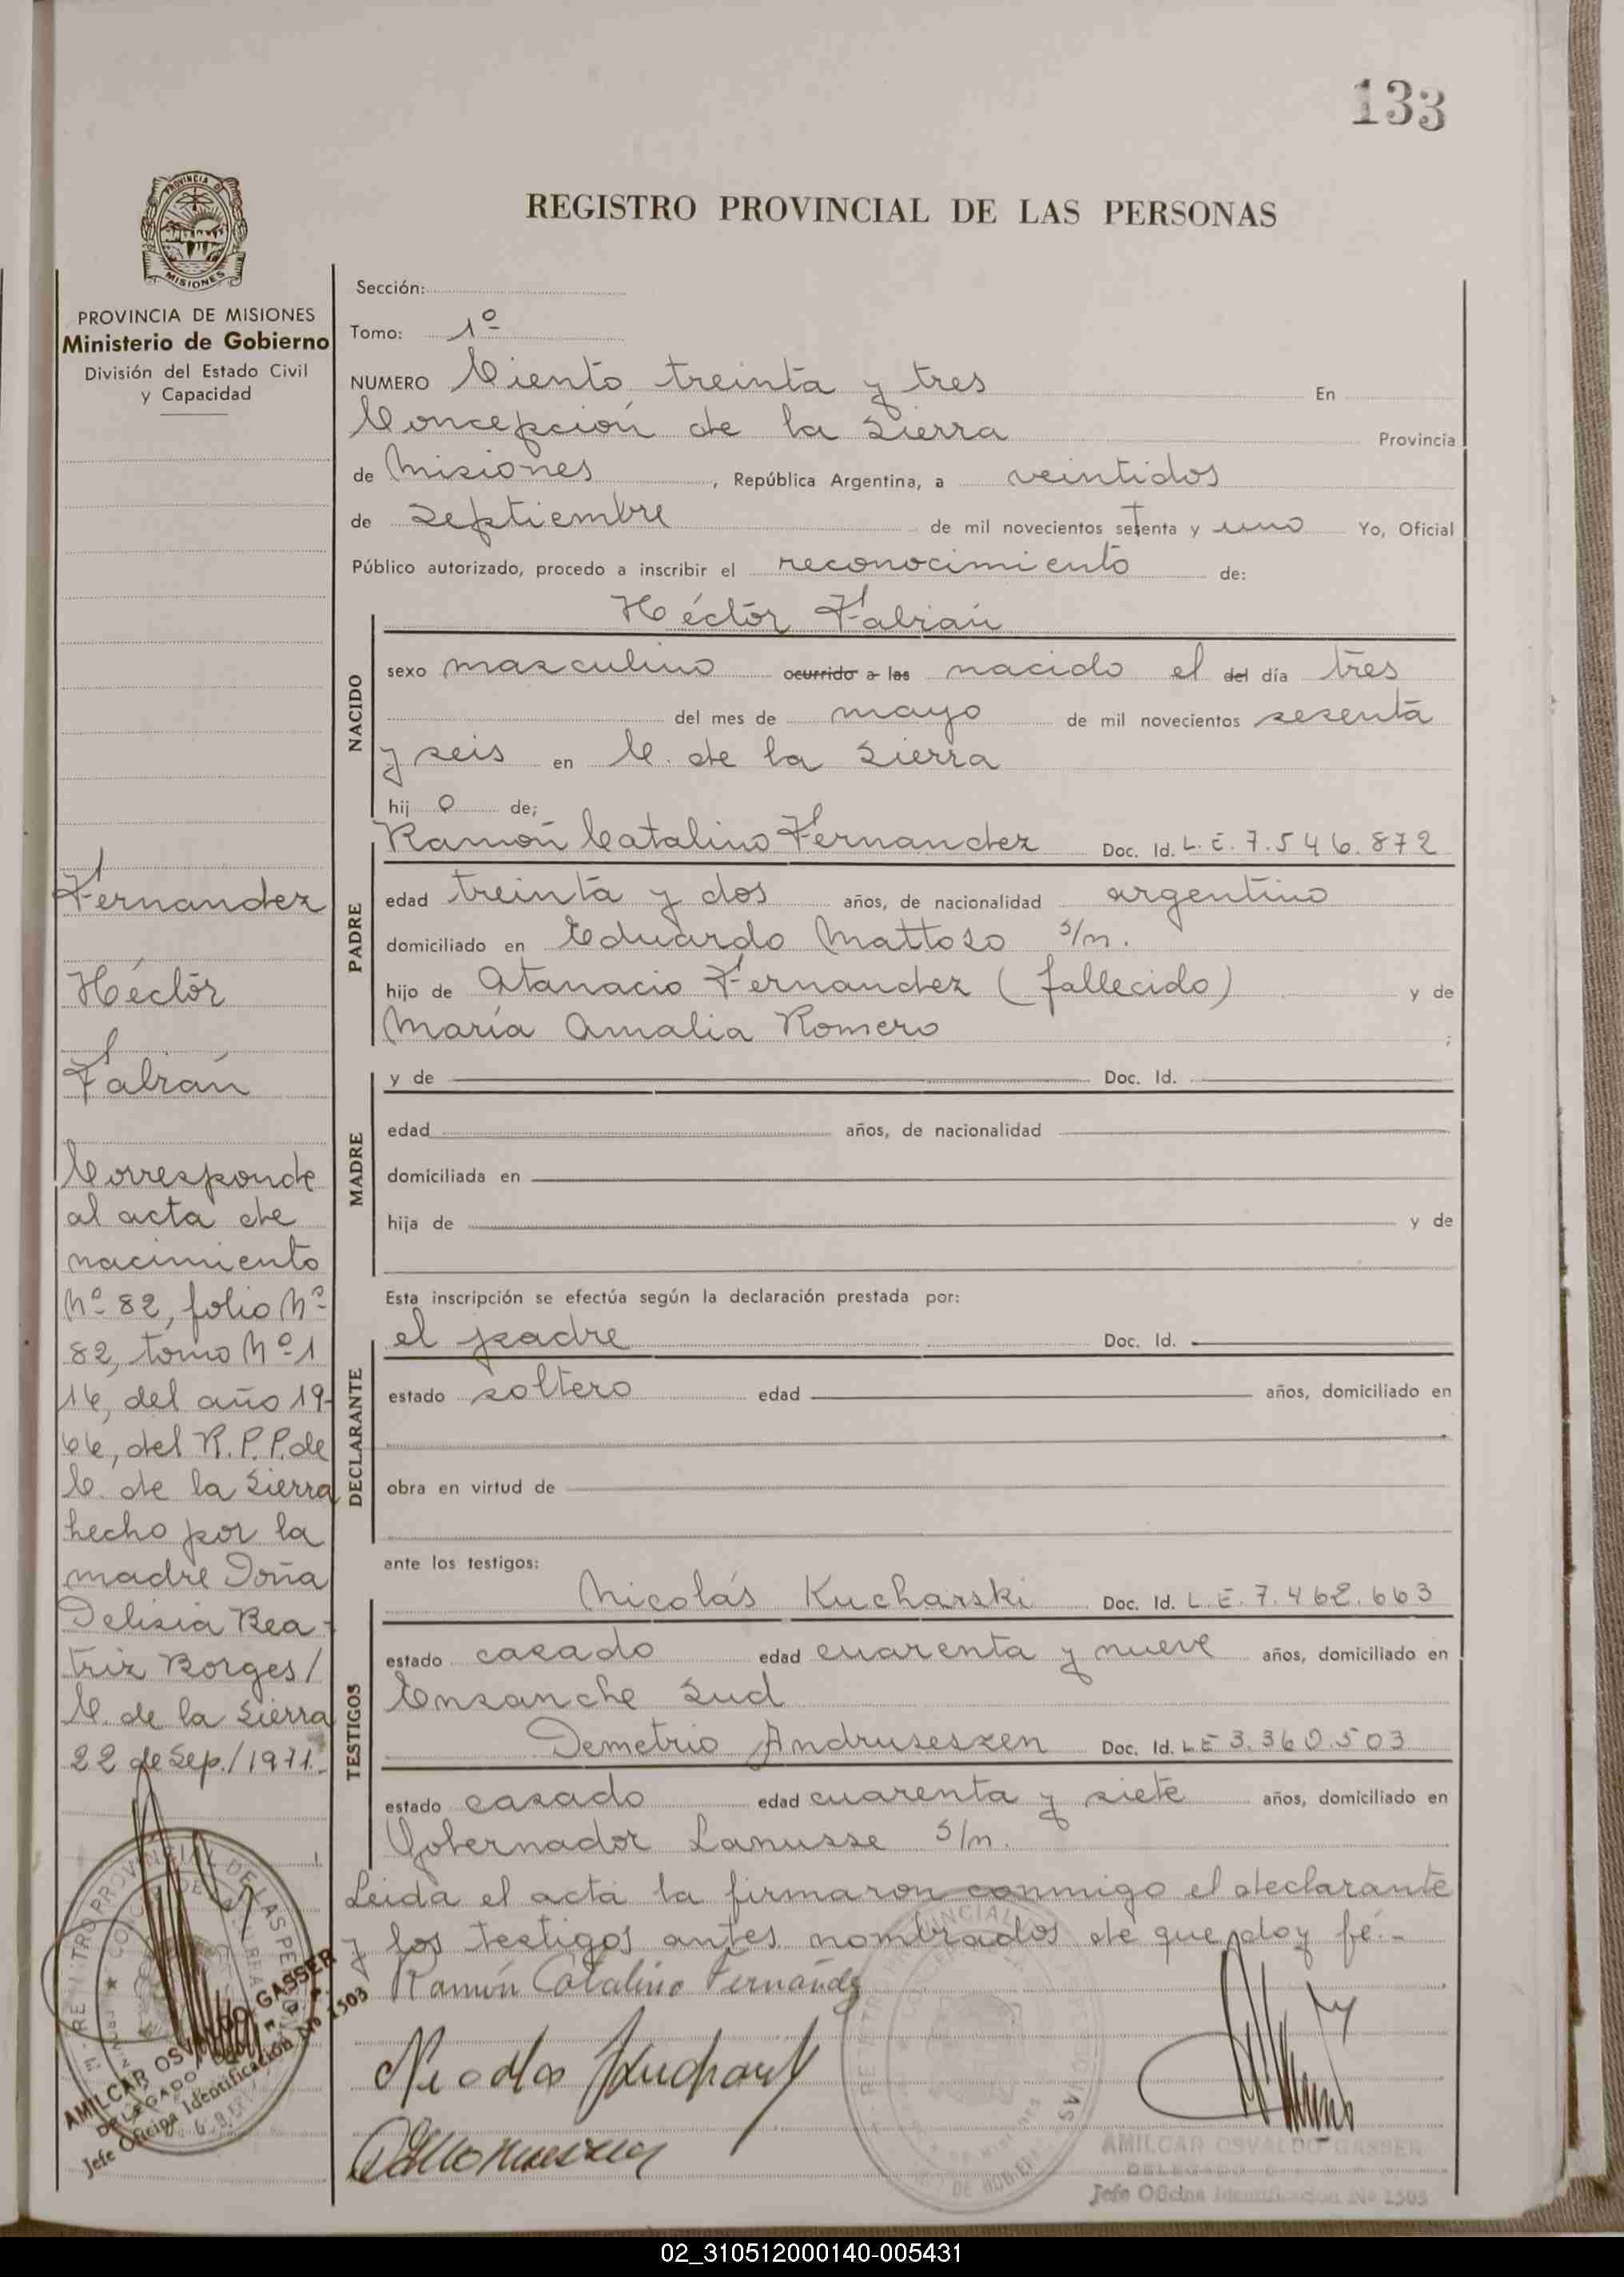 133
PROVINCIA DE
MISIONES
REGISTRO PROVINCIAL DE LAS PERSONAS
PROVINCIA DE MISIONES
Ministerio de Gobierno
División del Estado Civil
y Capacidad
Sección:
Tomo: 1º
NUMERO Ciento treinta y tres En
Concepción de la Sierra Provincia
de Misiones, República Argentina, a veintidos
de septiembre de mil novecientos setenta y uno Yo, Oficial
Público autorizado, procedo a inscribir el reconocimiento de:
Héctor Fabián
NACIDO
sexo masculino ocurrido a las nacido el del día tres
del mes de mayo de mil novecientos sesenta
y seis en C. de la Sierra
hij o de;
PADRE
Ramón Catalino Fernandez Doc. Id. L.E. 7.546.872
edad treinta y dos años, de nacionalidad argentino
domiciliado en Eduardo Mattoso s/n.
hijo de Atanacio Fernandez (fallecido) y de
María Amalia Romero ;
MADRE
y de Doc. Id.
edad años, de nacionalidad
domiciliada en
hija de y de
Esta inscripción se efectúa según la declaración prestada por:
DECLARANTE
el padre Doc. Id.
estado soltero edad años, domiciliado en
obra en virtud de
ante los testigos:
TESTIGOS
Nicolás Kucharski Doc. Id. L.E. 7.462.663
estado casado edad cuarenta y nueve años, domiciliado en
Ensanche Sud
Demetrio Andruseszen Doc. Id. LE 3.360.503
estado casado edad cuarenta y siete años, domiciliado en
Gobernador Lanusse s/n.
Leida el acta la firmaron conmigo el declarante
y los testigos antes nombrados de que doy fé.-
Ramón Catalino Fernández
AMILCAR OSVALDO GASSER
DELEGADO
Jefe Oficina Identificación No 1503
Fernandez
Héctor
Fabián
Corresponde
al acta de
nacimiento
Nº 82, folio Nº
82, tomo Nº 1
16, del año 19-
66, del R.P.P. de
C. de la Sierra
hecho por la
madre Doña
Delisia Bea-
triz Borges/
C. de la Sierra
22 de Sep./1971.-
AMILCAR OSVALDO GASSER
DELEGADO
Jefe Oficina Identificación No 1503
02_310512000140-005431